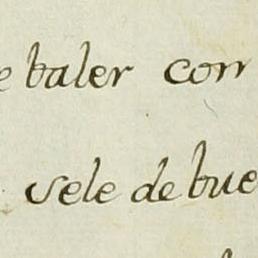 e baler con
sele debue